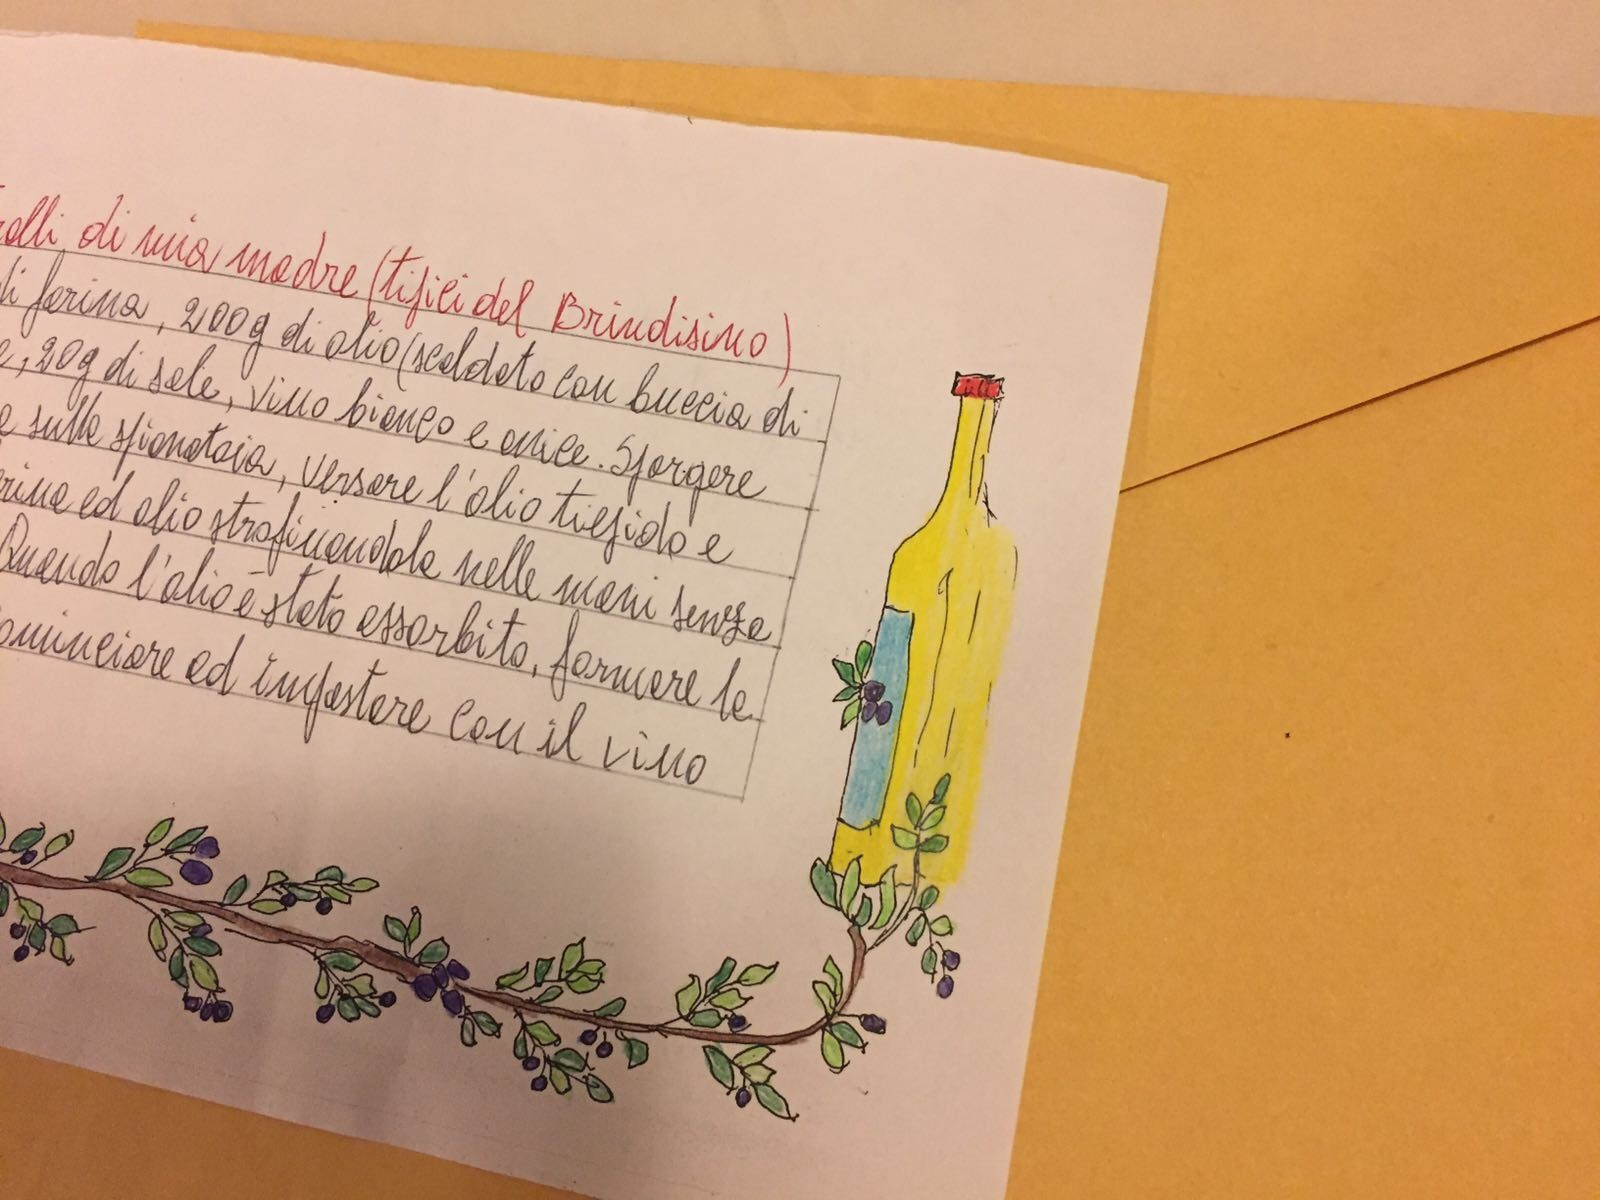 ralli di mia madre (tipici del Brindisino)
di farina, 200g di olio (scaldato con buccia di
e, 20g di sale, vino bianco e anice. Spargere
a sulla spianatoia, versare l'olio tiepido e
rina ed olio strofinandola nelle mani senza
Quando l'olio è stato assorbito, formare la
cominciare ad impastare con il vino